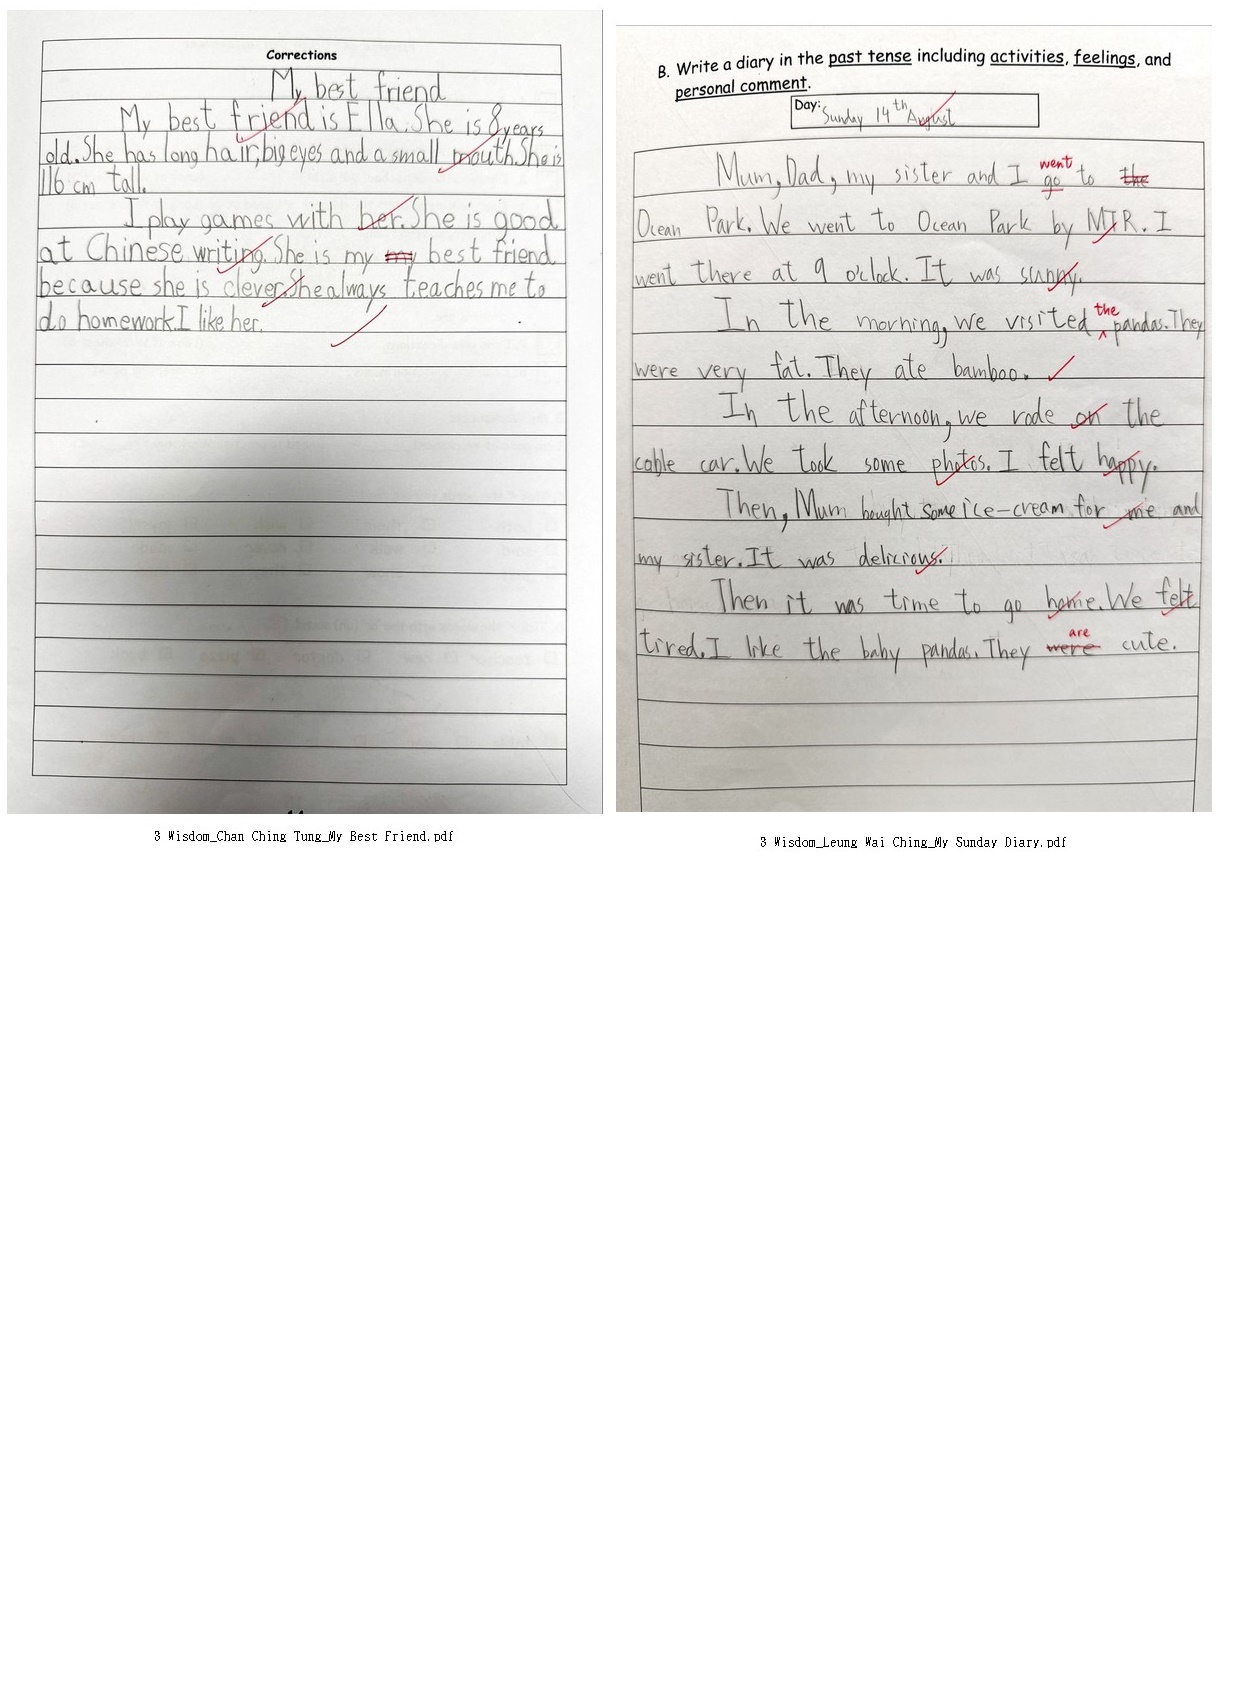 Corrections
My best friend
My best friend is Ella. She is 8 years
old. She has long hair, big eyes and a small mouth. She is
116 cm tall.
I play games with her. She is good
at Chinese writing. She is my my best friend
because she is clever. She always teaches me to
do homework. I like her.
3 Wisdom_Chan Ching Tung_My Best Friend.pdf
B. Write a diary in the past tense including activities, feelings, and
personal comment.
Day: Sunday 14th August
went
Mum, Dad, my sister and I go to the
Ocean Park. We went to Ocean Park by MTR. I
went there at 9 o'clock. It was sunny.
the
In the morning, we visited pandas. They
were very fat. They ate bamboo.
In the afternoon, we rode on the
cable car. We took some photos. I felt happy.
Then, Mum bought some ice-cream for me and
my sister. It was delicious.
Then it was time to go home. We felt
are
tired. I like the baby pandas. They were cute.
3 Wisdom_Leung Wai Ching_My Sunday Diary.pdf